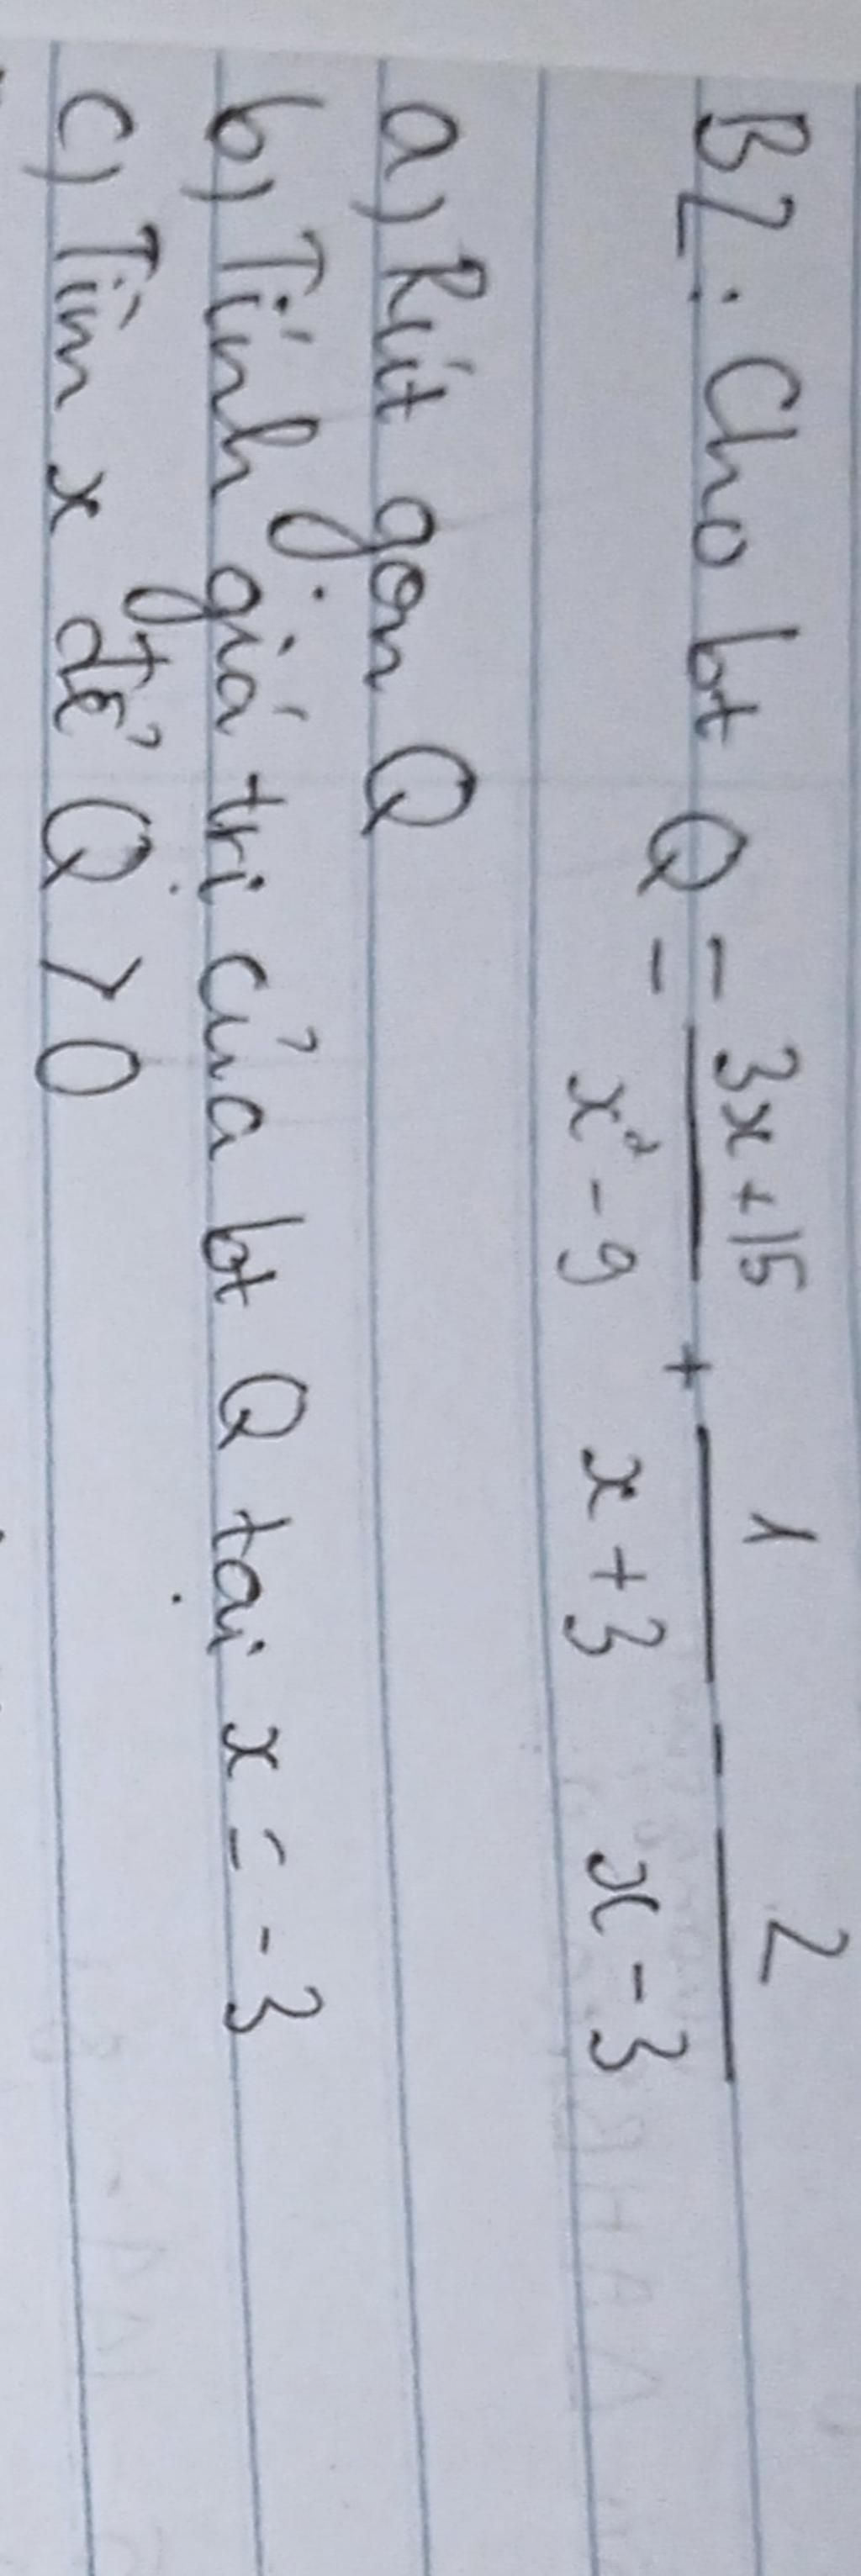 B2: Cho bt Q = \frac{3x+15}{x²-9} + \frac{1}{x+3} - \frac{2}{x-3}
a) Rút gọn Q
b) Tính giá trị của bt Q tại x = -3
c) Tìm x để Q > 0